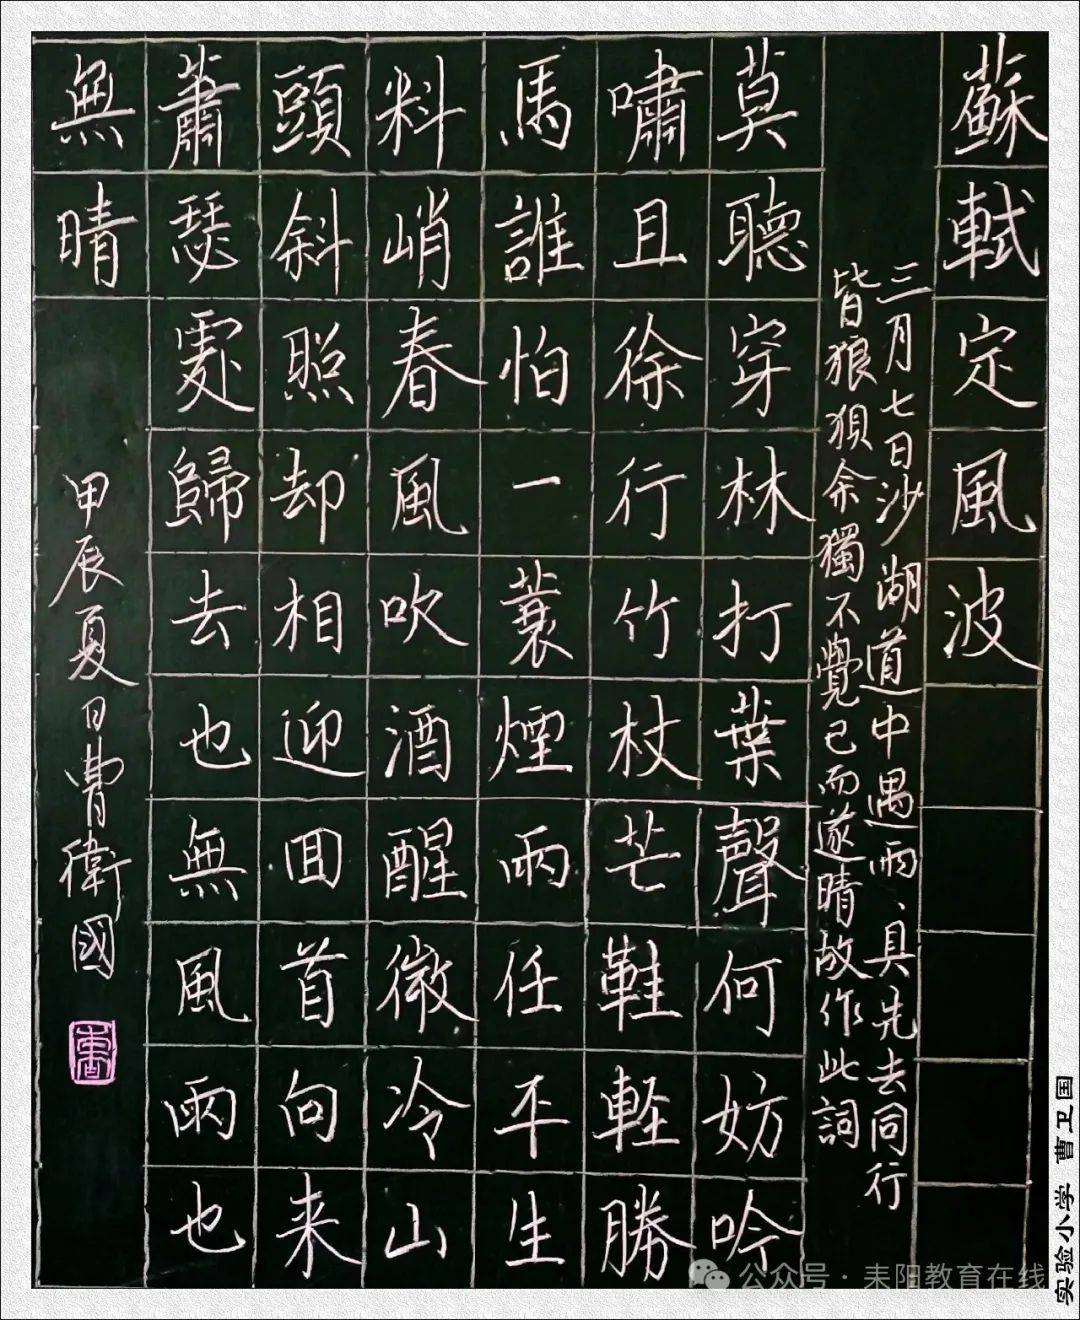 蘇軾定風波
三月七日沙湖道中遇雨、具先去同行
皆狼狽余獨不覺已而遂晴故作此詞
莫聽穿林打葉聲何妨吟
嘯且徐行竹杖芒鞋軽勝
馬誰怕一蓑煙雨任平生
料峭春風吹酒醒微冷山
頭斜照却相迎回首向来
蕭瑟處歸去也無風雨也
無晴
甲辰夏日曹衛國
实验小学 曹卫国
公众号·耒阳教育在线